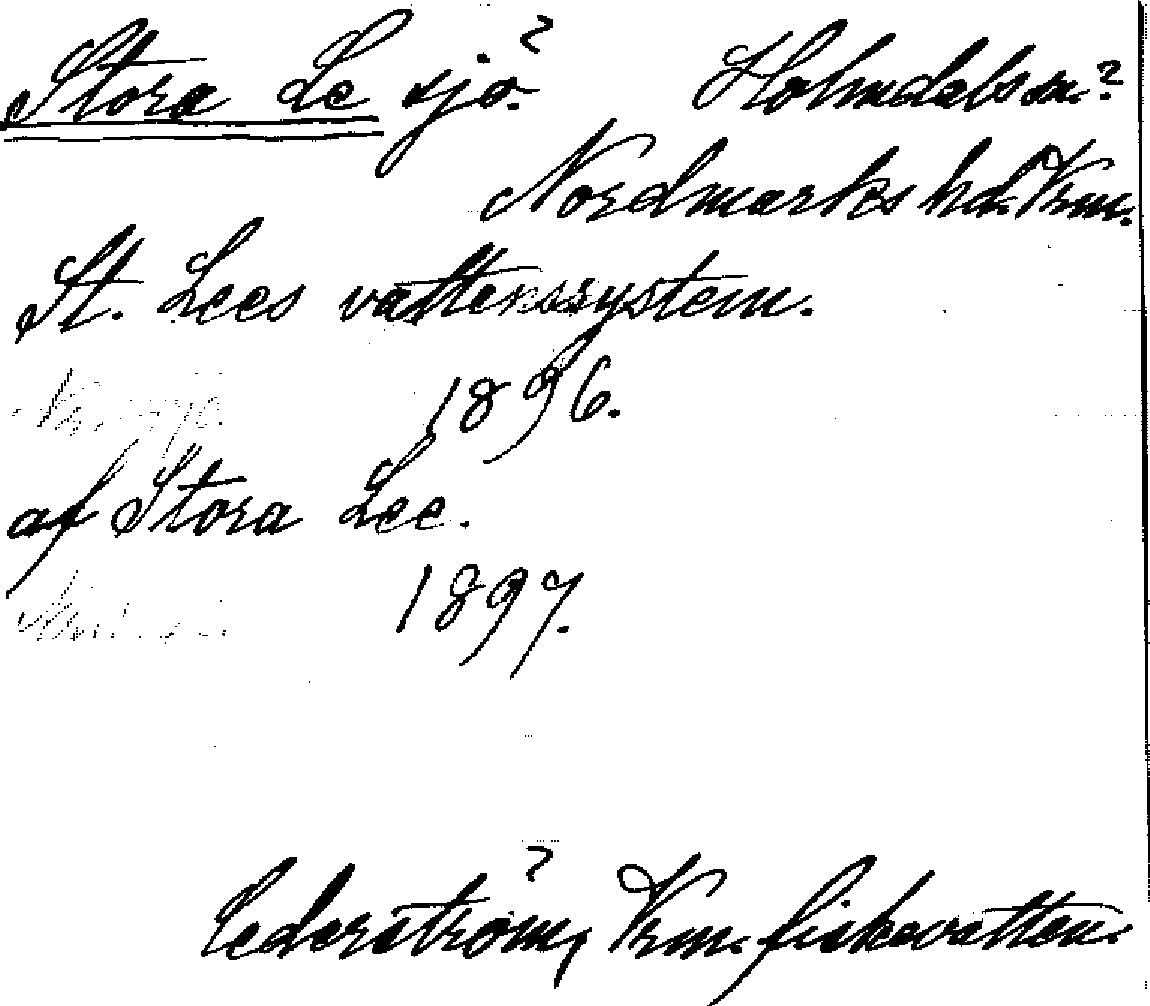 Stora Le sjö. Holmedals sn.
Nordmarks hd. Vrm.
St. Lees vattenssystem.
1896.
af Stora Lee.
1897.
Cederström, Vrm. fiskevatten.